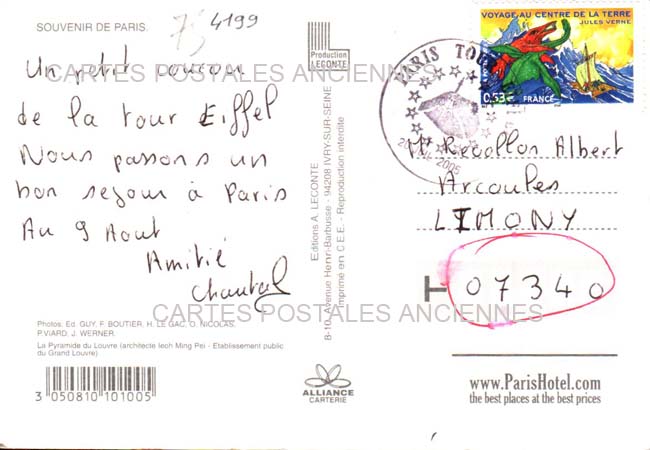 SOUVENIR DE PARIS.
75 4199
Un petit coucou
de la tour Eiffel
Nous passons un
bon sejour à Paris
Au 9 Aout
Amitié
Chantal
CARTES POSTALES ANCIENNES
CARTES POSTALES ANCIENNES
Photos: Ed. GUY, F. BOUTIER, H. LE GAC, O. NICOLAS,
P.VIARD, J. WERNER.
La Pyramide du Louvre (architecte Ieoh Ming Pei - Etablissement public
du Grand Louvre)
3 050810 101005
Production
LECONTE
Editions A. LECONTE
8-10, Avenue Henri-Barbusse - 94208 IVRY-SUR-SEINE
Imprimé en C.E.E. - Reproduction interdite
ALLIANCE
CARTERIE
PARIS TOUR
2005
VOYAGE AU CENTRE DE LA TERRE
JULES VERNE
0,53€ FRANCE
Mr Recollon Albert
Arcoules
LIMONY
07340
www.ParisHotel.com
the best places at the best prices